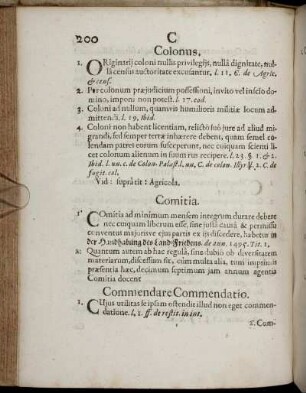 200 C
Colonus.
1. ORiginarij coloni nullis privilegijs, nullâ dignitate, nul-
lâ census auctoritate excusantur, l. 11. C. de Agric.
& cens.
2. Per colonum præjudicium possessioni, invito vel inscio do-
mino, imponi non potest. l. 17. eod.
3. Coloni ad nullum, quamvis humilioris militiæ locum ad-
mittendi. l. 19. ibid.
4. Coloni non habent licentiam, relicto suo jure ad aliud mi-
grandi, sed semper terræ inhærere debent, quam semel co-
lendam patres eorum susceperunt, nec cuiquam scienti li-
cet colonum alienum in suum rus recipere. l. 23. §. 1. & 2.
Ibid. l. un. c. de Colon. Palæst. l. un. C. de colon. Illyr. l. 2. C. de
fugit. col.
Vid: supra tit: Agricola.
Comitia.
1. COmitia ad minimum mensem integrum durare debere
nec cuiquam liberum esse, sine justa causa & permissu
conventus majorive ejus partis ex ijs discedere, habetur in
der Handhabung des Land-Friedens. de ann. 1495. Tit. 1.
2. Quantum autem ab hac regulâ, sine dubio ob diversitatem
materiarum, discessum sit, cùm multa alia, tum imprimis
præsentia hæc, decimum septimum jam annum agentia
Comitia docent
Commendare Commendatio.
1. CUjus utilitas se ipsam ostendit illud non eget commen-
datione. l. 1. ff. de restit. in int.
2. Com-